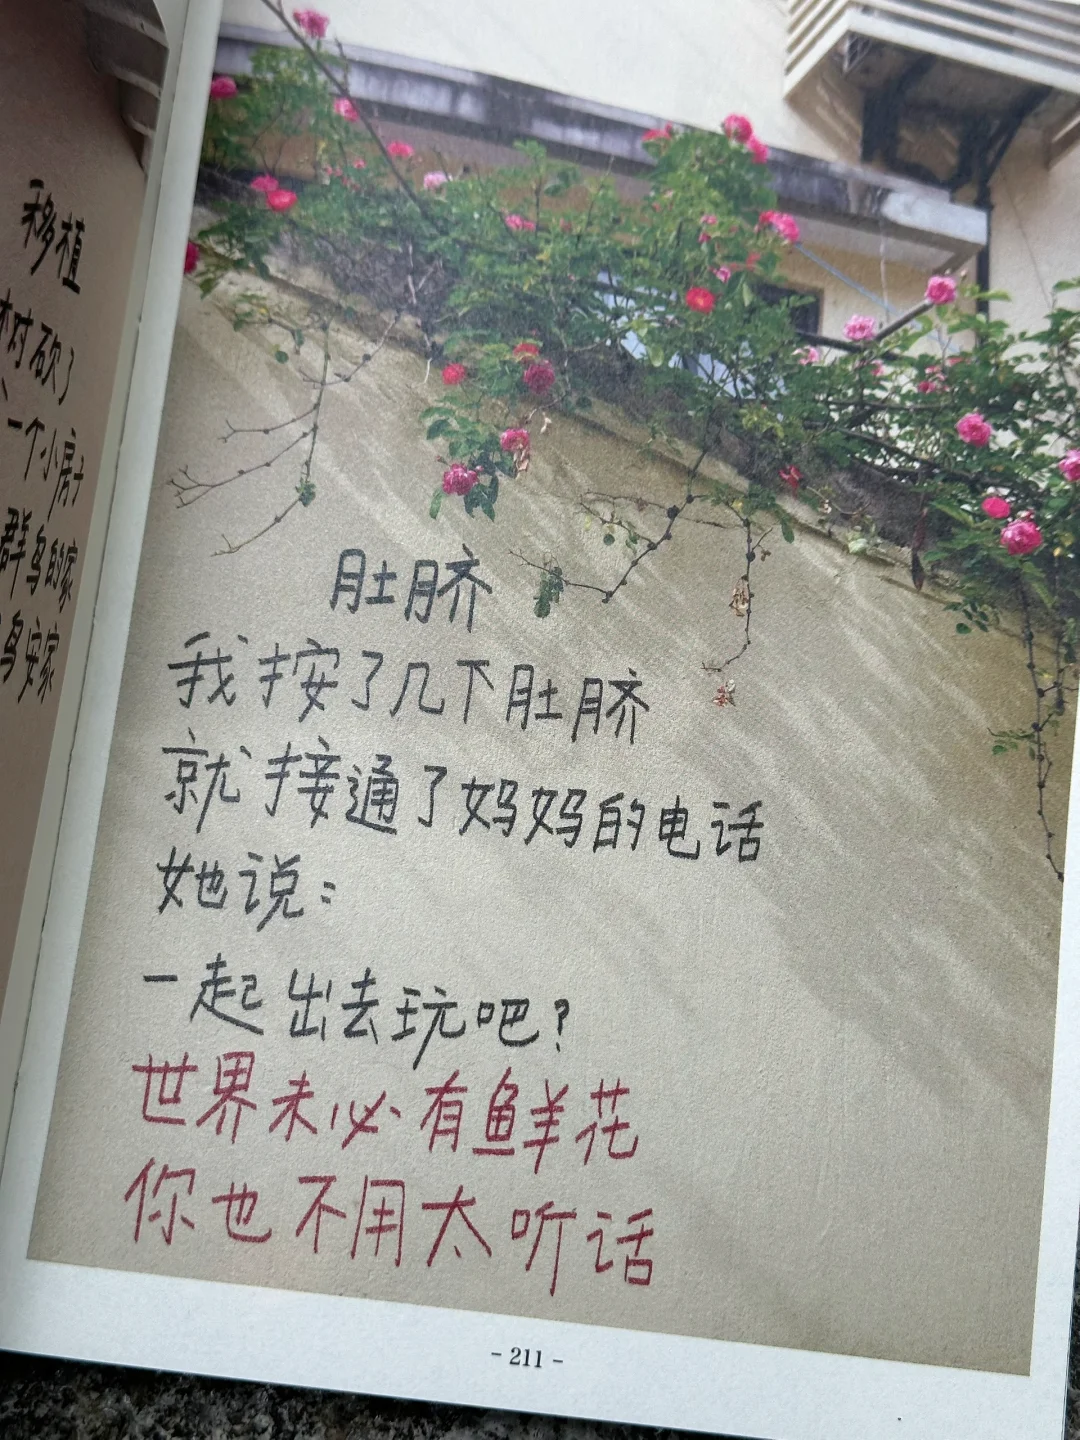 移植
树砍了
一个小房子
群鸟的家
鸟安家
肚脐
我按了几下肚脐
就接通了妈妈的电话
她说：
一起出去玩吧？
世界未必有鲜花
你也不用太听话
- 211 -